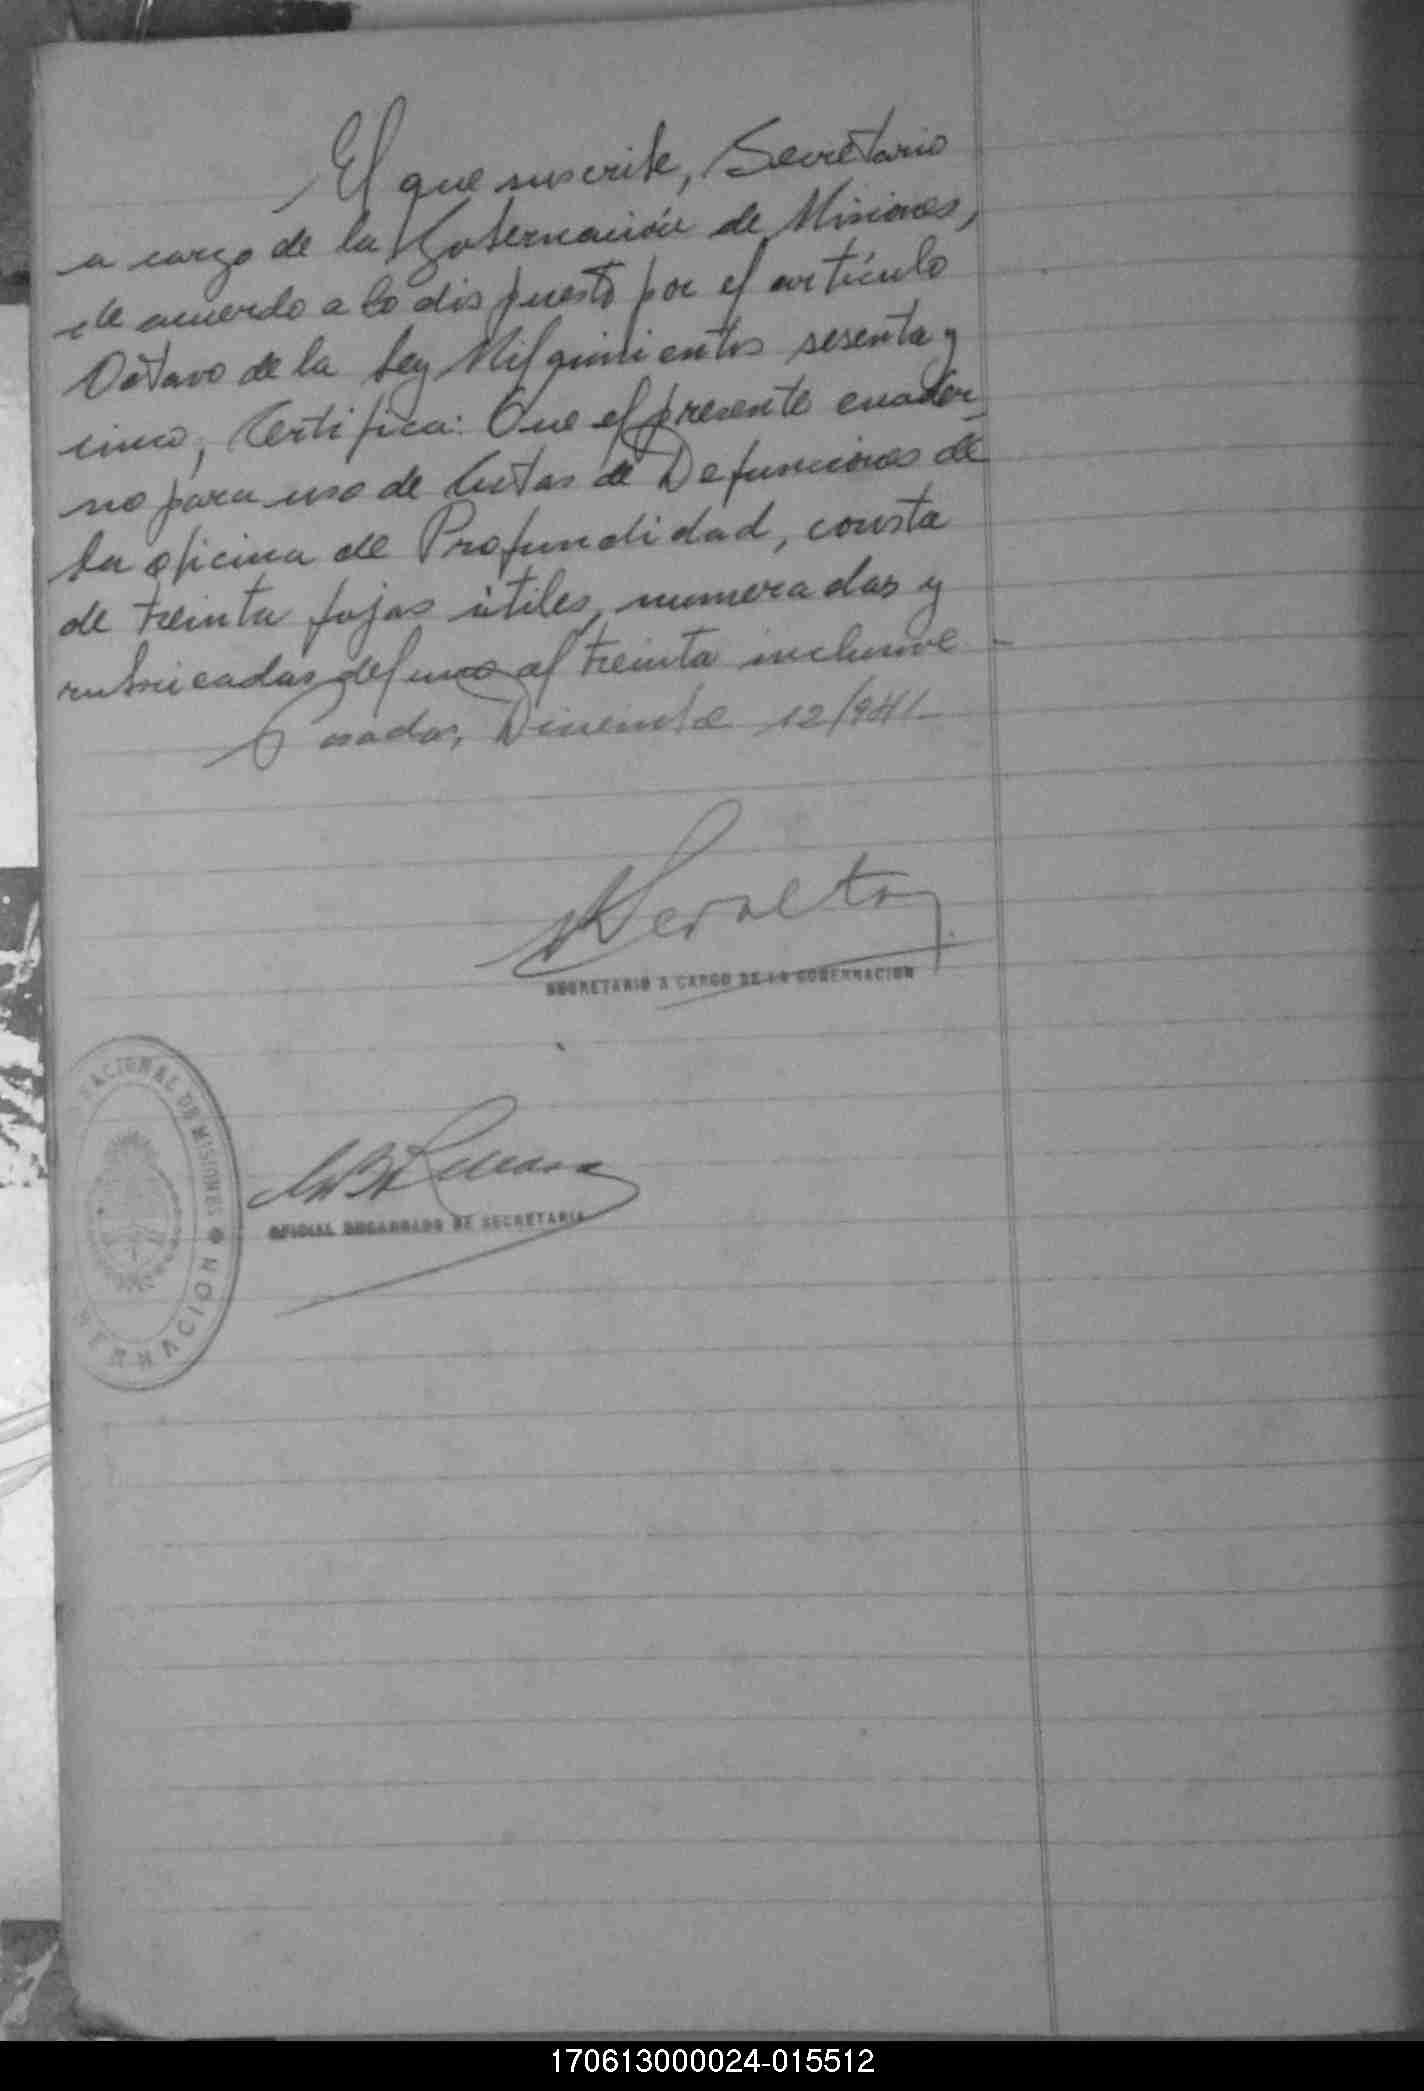 El que suscribe, Secretario
a cargo de la Gobernación de Misiones,
de acuerdo a lo dispuesto por el artículo
Octavo de la Ley Mil quinientos sesenta y
cinco, Certifica: Que el presente cuader-
no para uso de Actas de Defunciones de
la oficina de Profundidad, consta
de treinta fojas útiles, numeradas y
rubricadas del uno al treinta inclusive -
Posadas, Diciembre 12/941-
SECRETARIO A CARGO DE LA GOBERNACION
NACIONAL DE MISIONES
OFICIAL ENCARGADO DE SECRETARIA
ERNACION
170613000024-015512